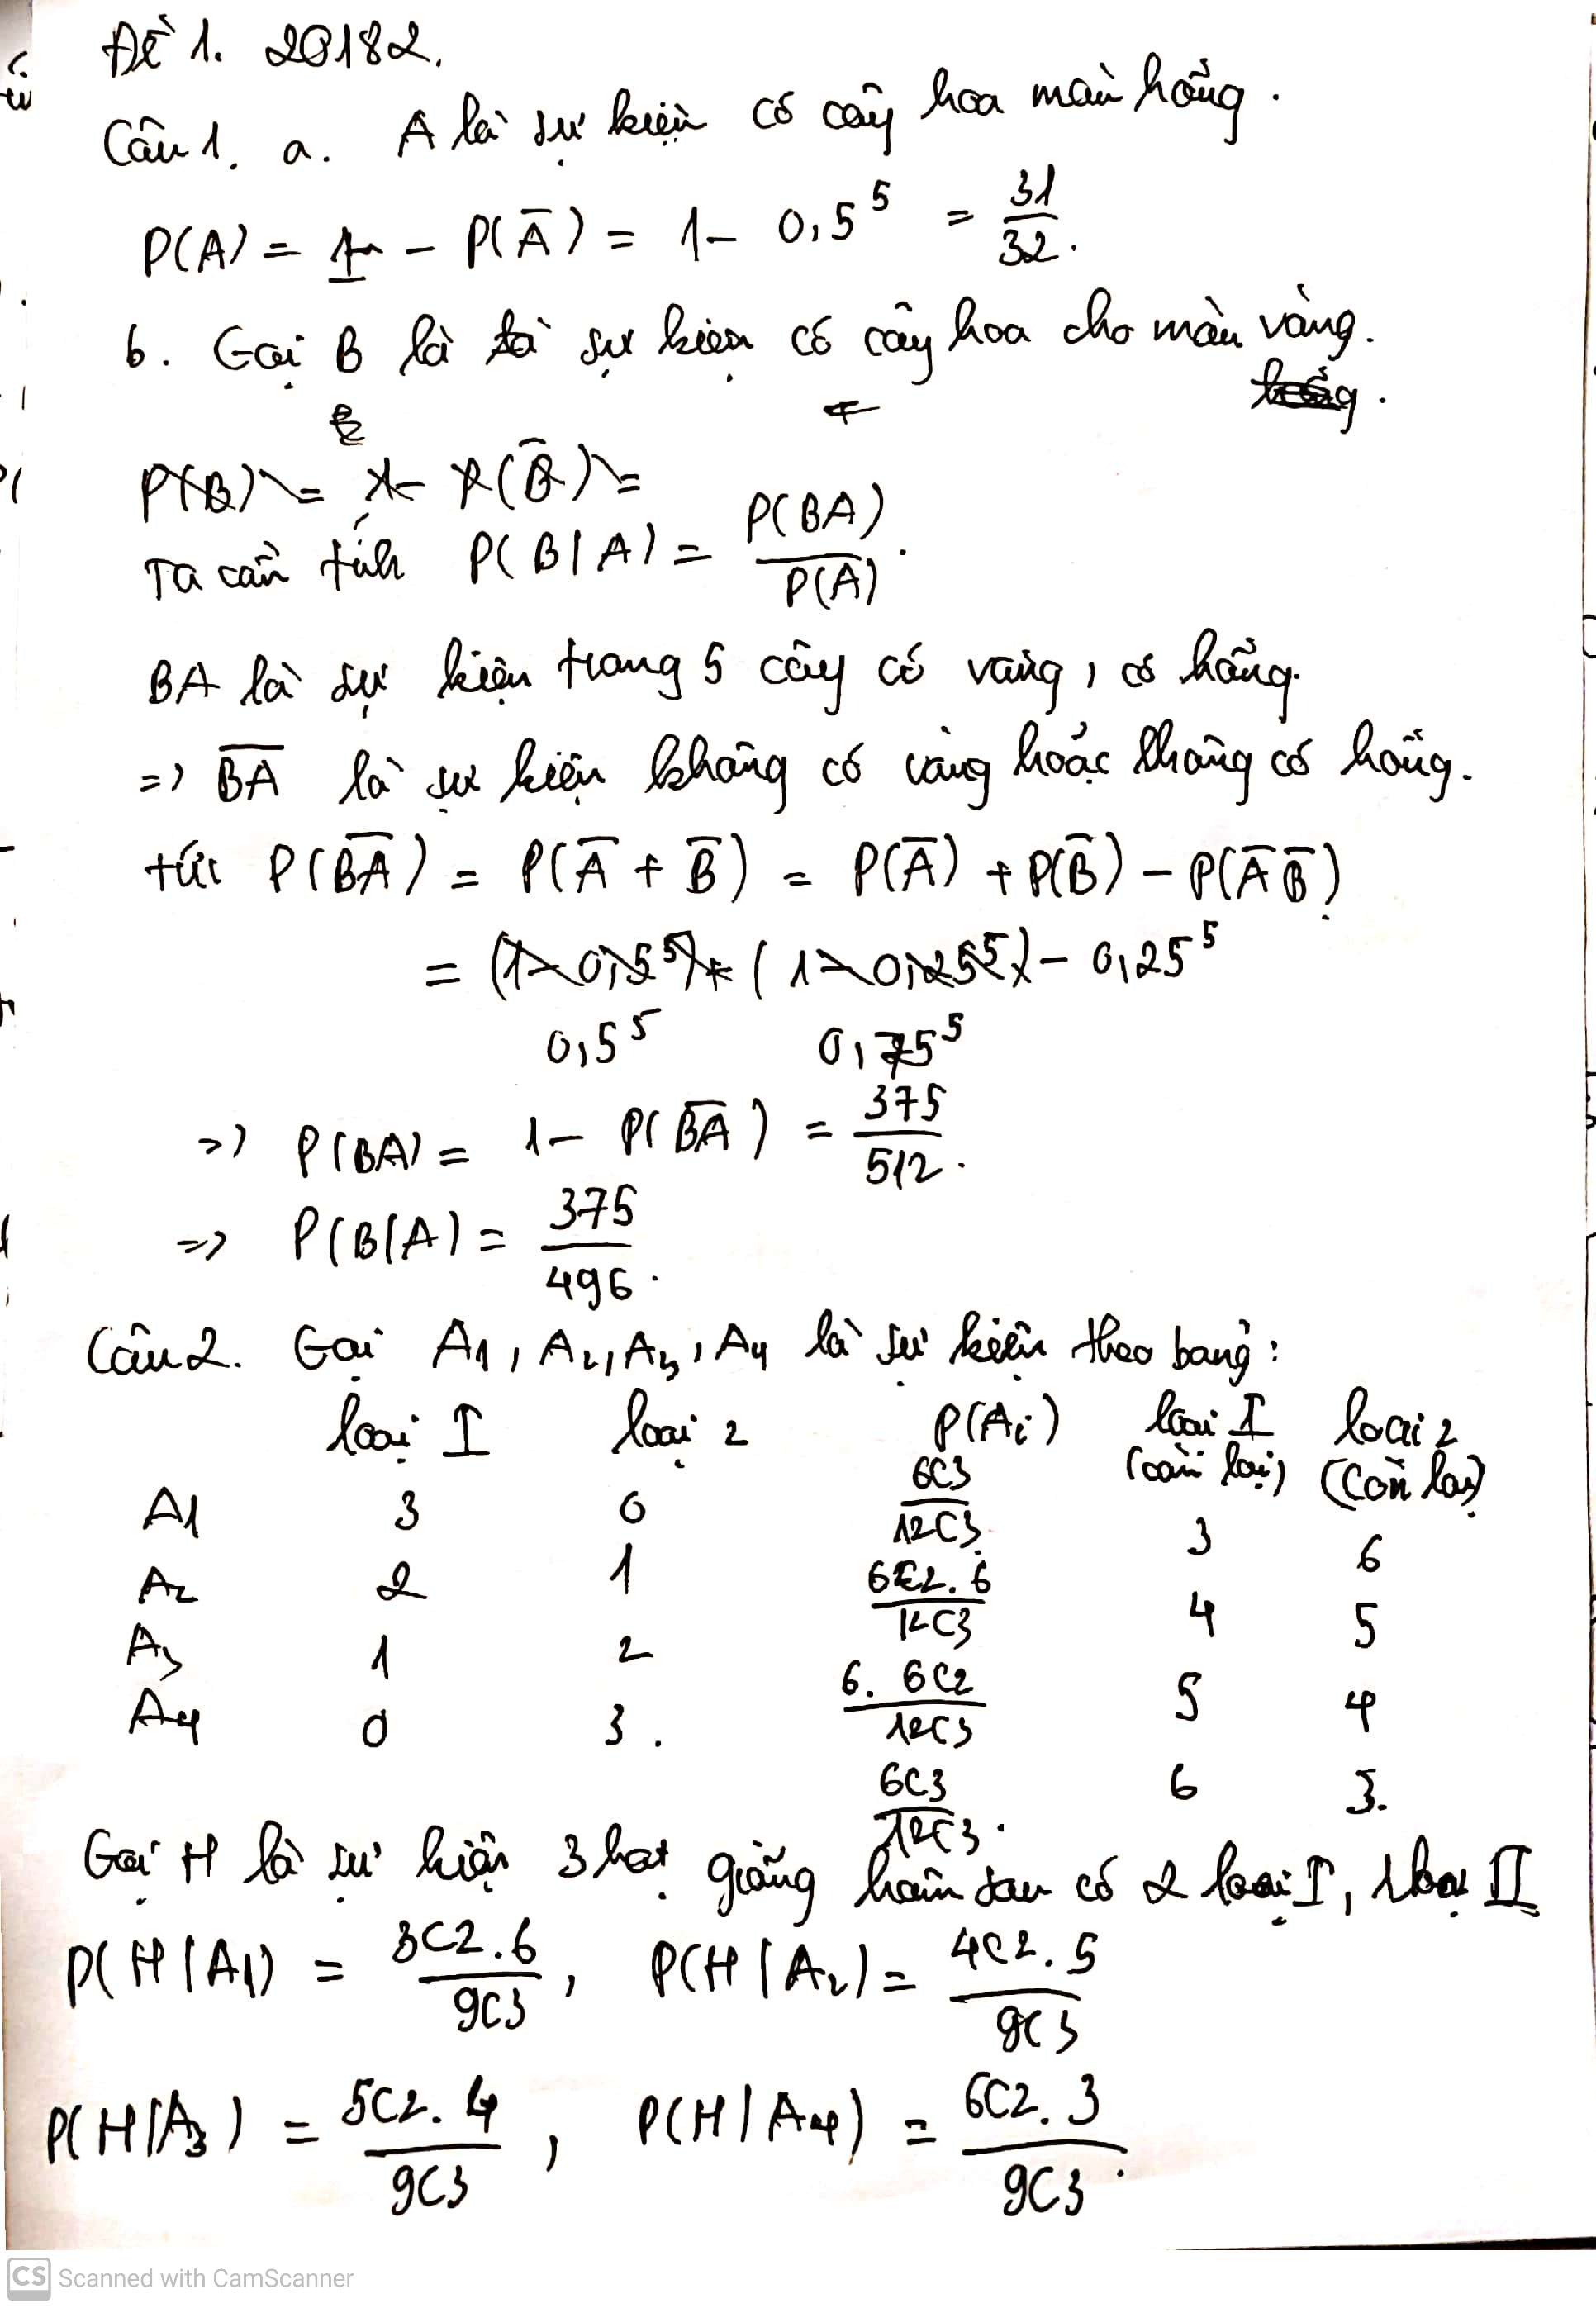 Đề 1. 20182.
Câu 1. a. A là sự kiện có cây hoa màu hồng.
P(A) = 1 - P(Ā) = 1 - 0,5⁵ = 31/32.
b. Gọi B là sự kiện có cây hoa cho màu vàng.
P(B) = 1 - P(B̄) =
Ta cần tính P(B|A) = P(BA)/P(A).
BA là sự kiện trong 5 cây có vàng, có hồng.
=> \overline{BA} là sự kiện không có vàng hoặc không có hồng.
tức P(\overline{BA}) = P(Ā + B̄) = P(Ā) + P(B̄) - P(ĀB̄)
= (1 - 0,5⁵) + (1 - 0,25⁵) - 0,25⁵
0,5⁵ 0,75⁵
=> P(BA) = 1 - P(\overline{BA}) = 375/512.
=> P(B|A) = 375/496.
Câu 2. Gọi A1, A2, A3, A4 là sự kiện theo bảng:
loại I loại 2 P(Ai) loại I (còn lại) loại 2 (còn lại)
A1 3 0 6C3/12C3 3 6
A2 2 1 6C2.6/12C3 4 5
A3 1 2 6.6C2/12C3 5 4
A4 0 3. 6C3/12C3. 6 3.
Gọi H là sự kiện 3 hạt giống hôm sau có 2 loại I, 1 loại II
P(H|A1) = 3C2.6/9C3, P(H|A2) = 4C2.5/9C3
P(H|A3) = 5C2.4/9C3, P(H|A4) = 6C2.3/9C3.
CS Scanned with CamScanner